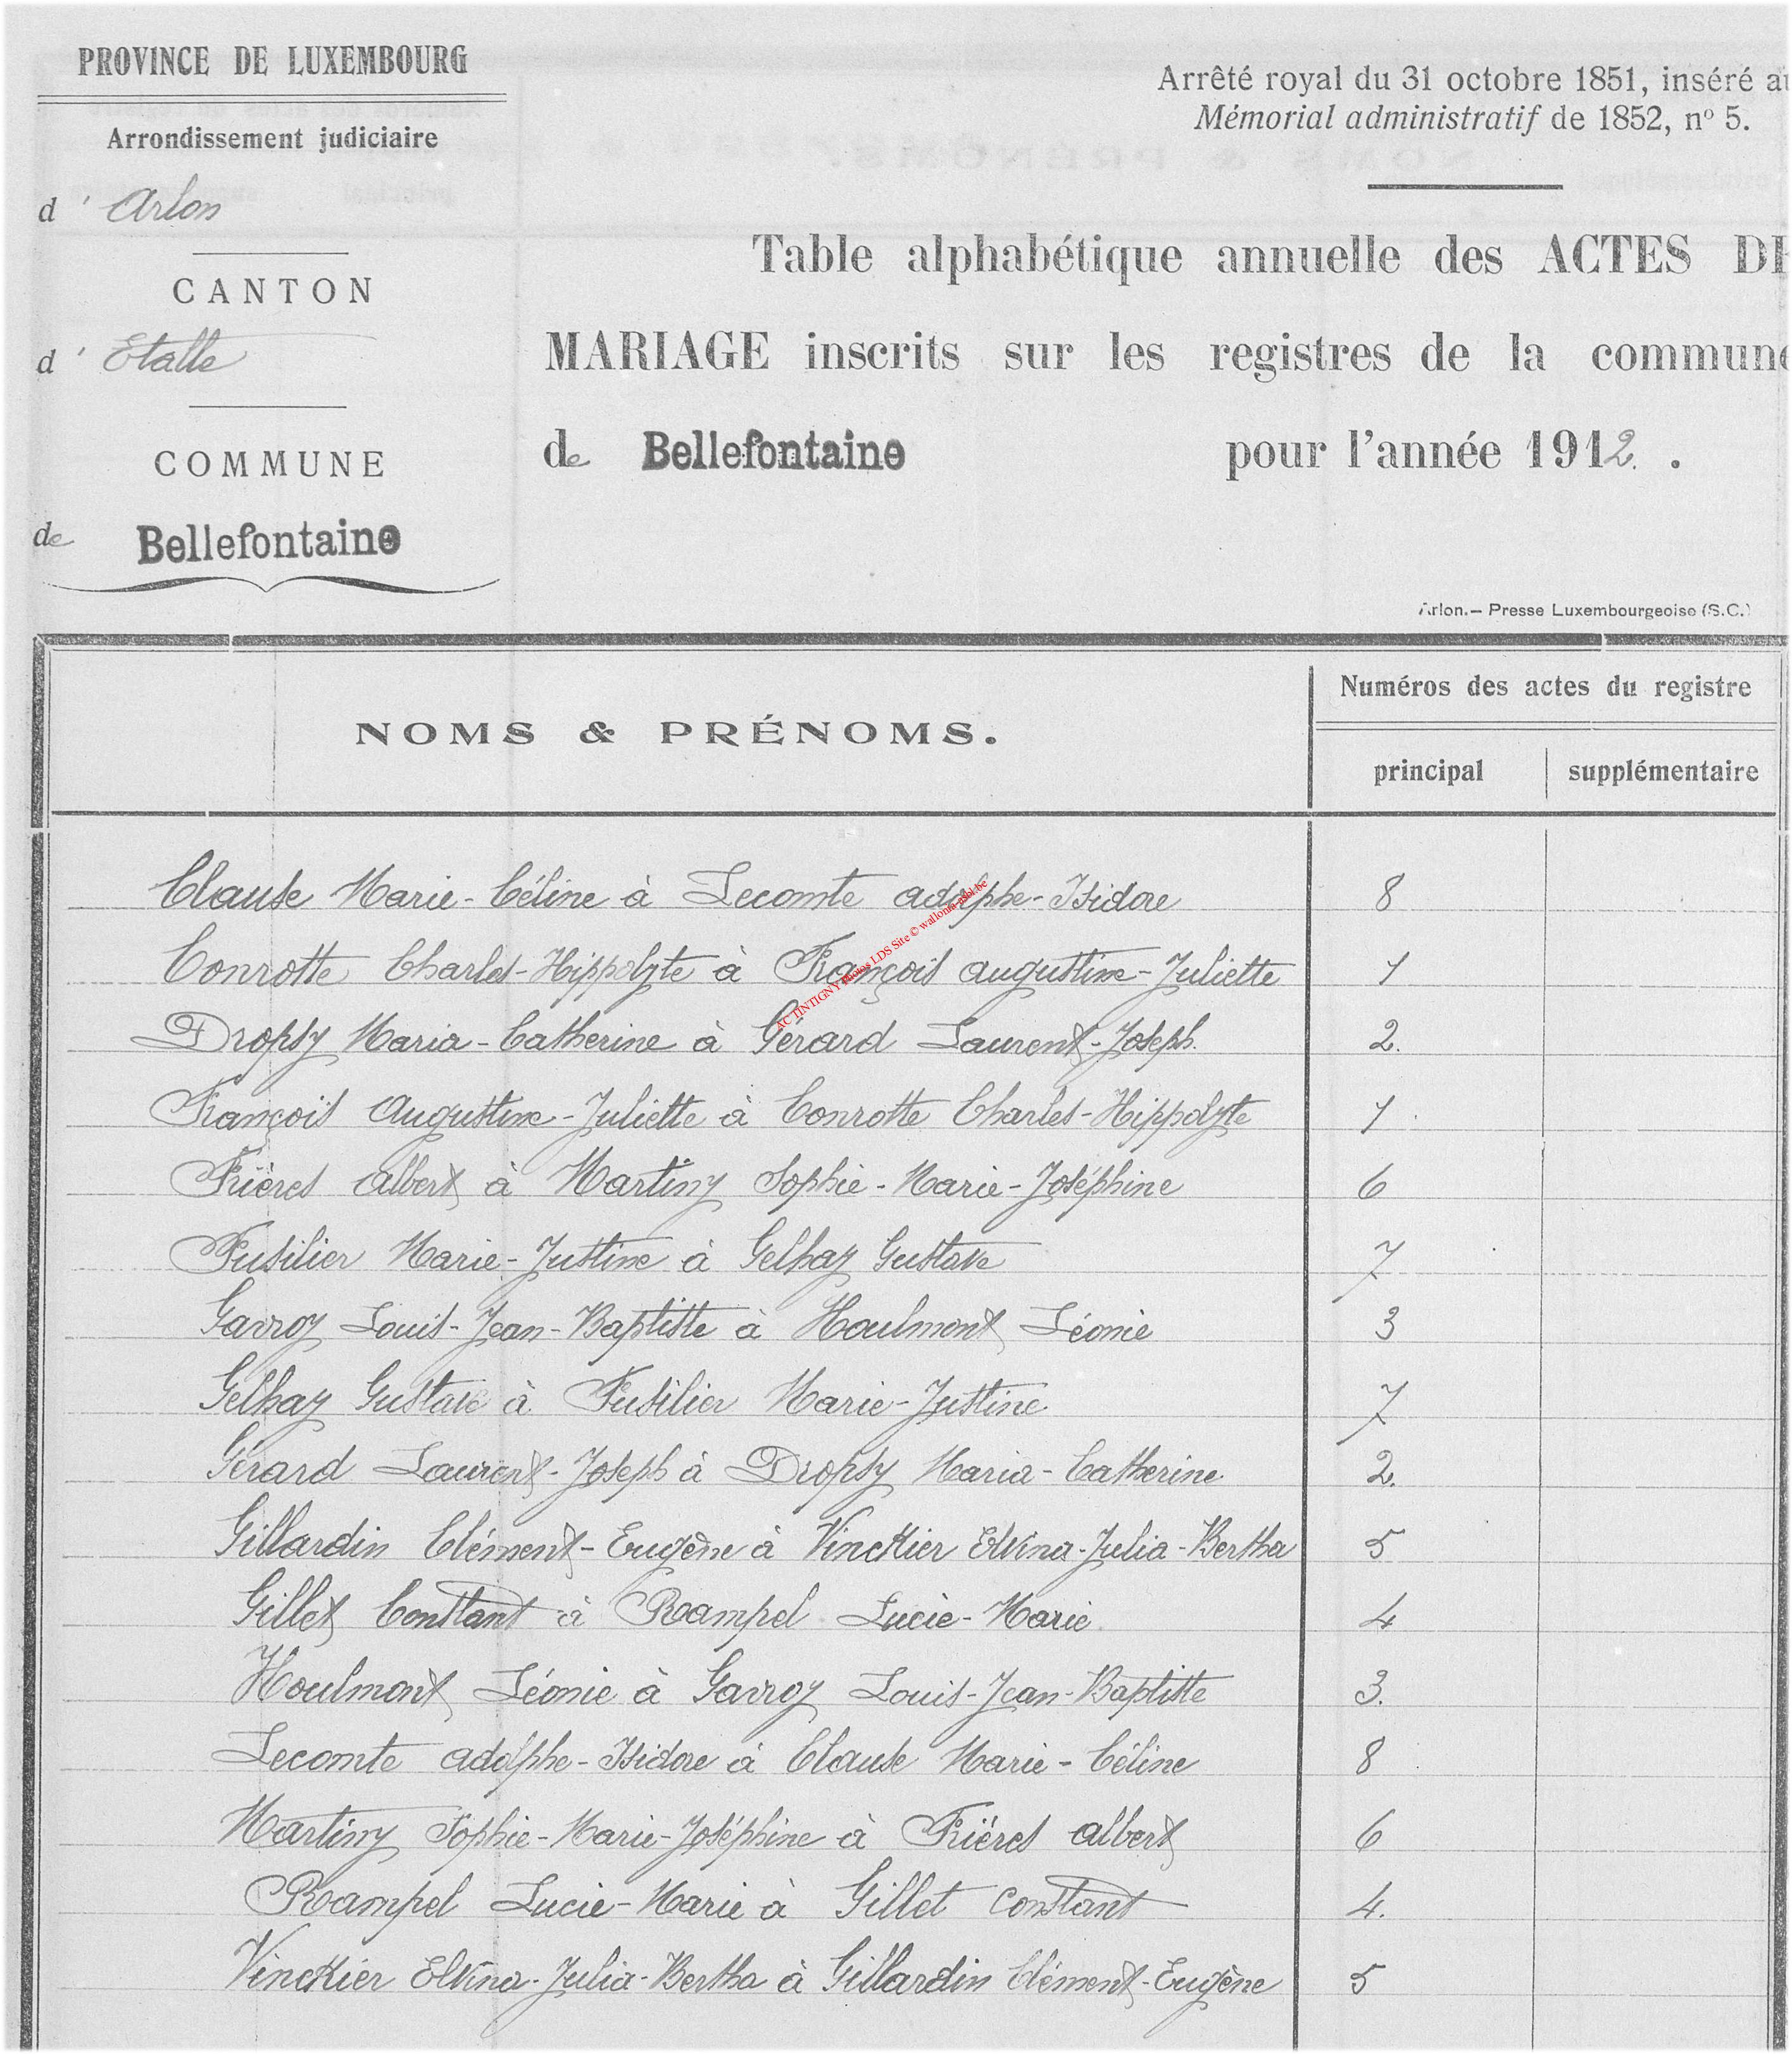 PROVINCE DE LUXEMBOURG
Arrondissement judiciaire
d' Arlon
CANTON
d' Etalle
COMMUNE
de Bellefontaine
Arrêté royal du 31 octobre 1851, inséré au
Mémorial administratif de 1852, nº 5.
Table alphabétique annuelle des ACTES DE
MARIAGE inscrits sur les registres de la commune
de Bellefontaine pour l'année 1912.
Arlon.— Presse Luxembourgeoise (S.C.)
NOMS & PRÉNOMS.
Numéros des actes du registre
principal supplémentaire
Clause Marie-Céline à Lecomte Adolphe-Isidore 8
Conrotte Charles-Hippolyte à François Augustine-Juliette 1
Dropsy Maria-Catherine à Gérard Laurent-Joseph. 2.
François Augustine-Juliette à Conrotte Charles-Hippolyte 1
Frières Albert à Martiny Sophie-Marie-Joséphine 6
Fusilier Marie-Justine à Gelhay Gustave 7
Gavroy Louis-Jean-Baptiste à Houlmont Léonie 3
Gelhay Gustave à Fusilier Marie-Justine 7
Gérard Laurent-Joseph à Dropsy Maria-Catherine 2.
Gillardin Clément-Eugène à Vinckier Elvina-Julia-Bertha 5
Gillet Constant à Rampel Lucie-Marie 4
Houlmont Léonie à Gavroy Louis-Jean-Baptiste 3.
Lecomte Adolphe-Isidore à Clause Marie-Céline 8
Martiny Sophie-Marie-Joséphine à Frières Albert 6
Rampel Lucie-Marie à Gillet Constant 4.
Vinckier Elvina-Julia-Bertha à Gillardin Clément-Eugène 5
AC TINTIGNY Photos LDS Site © wallonia-asbl.be